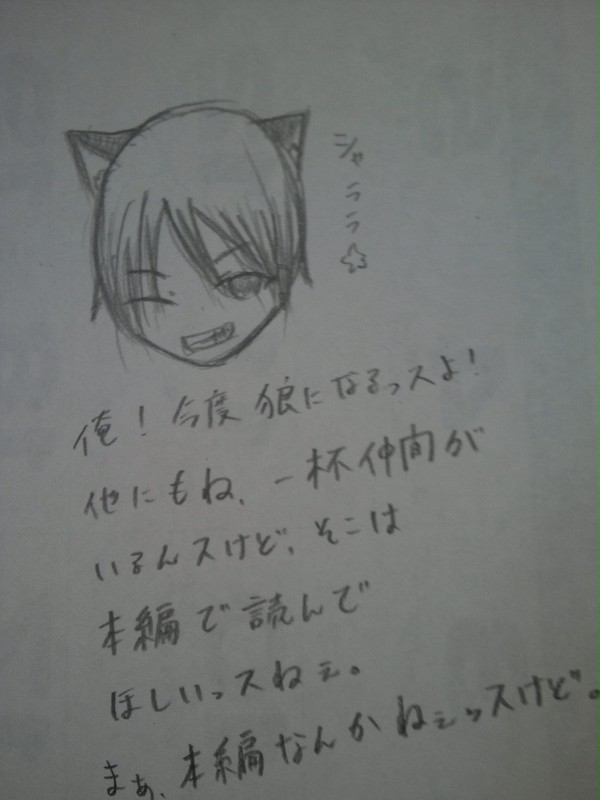 シャララ☆
俺！今度狼になるっスよ！
他にもね、一杯仲間が
いるんスけど、そこは
本編で読んで
ほしいっスねぇ。
まぁ、本編なんかねぇっスけど。